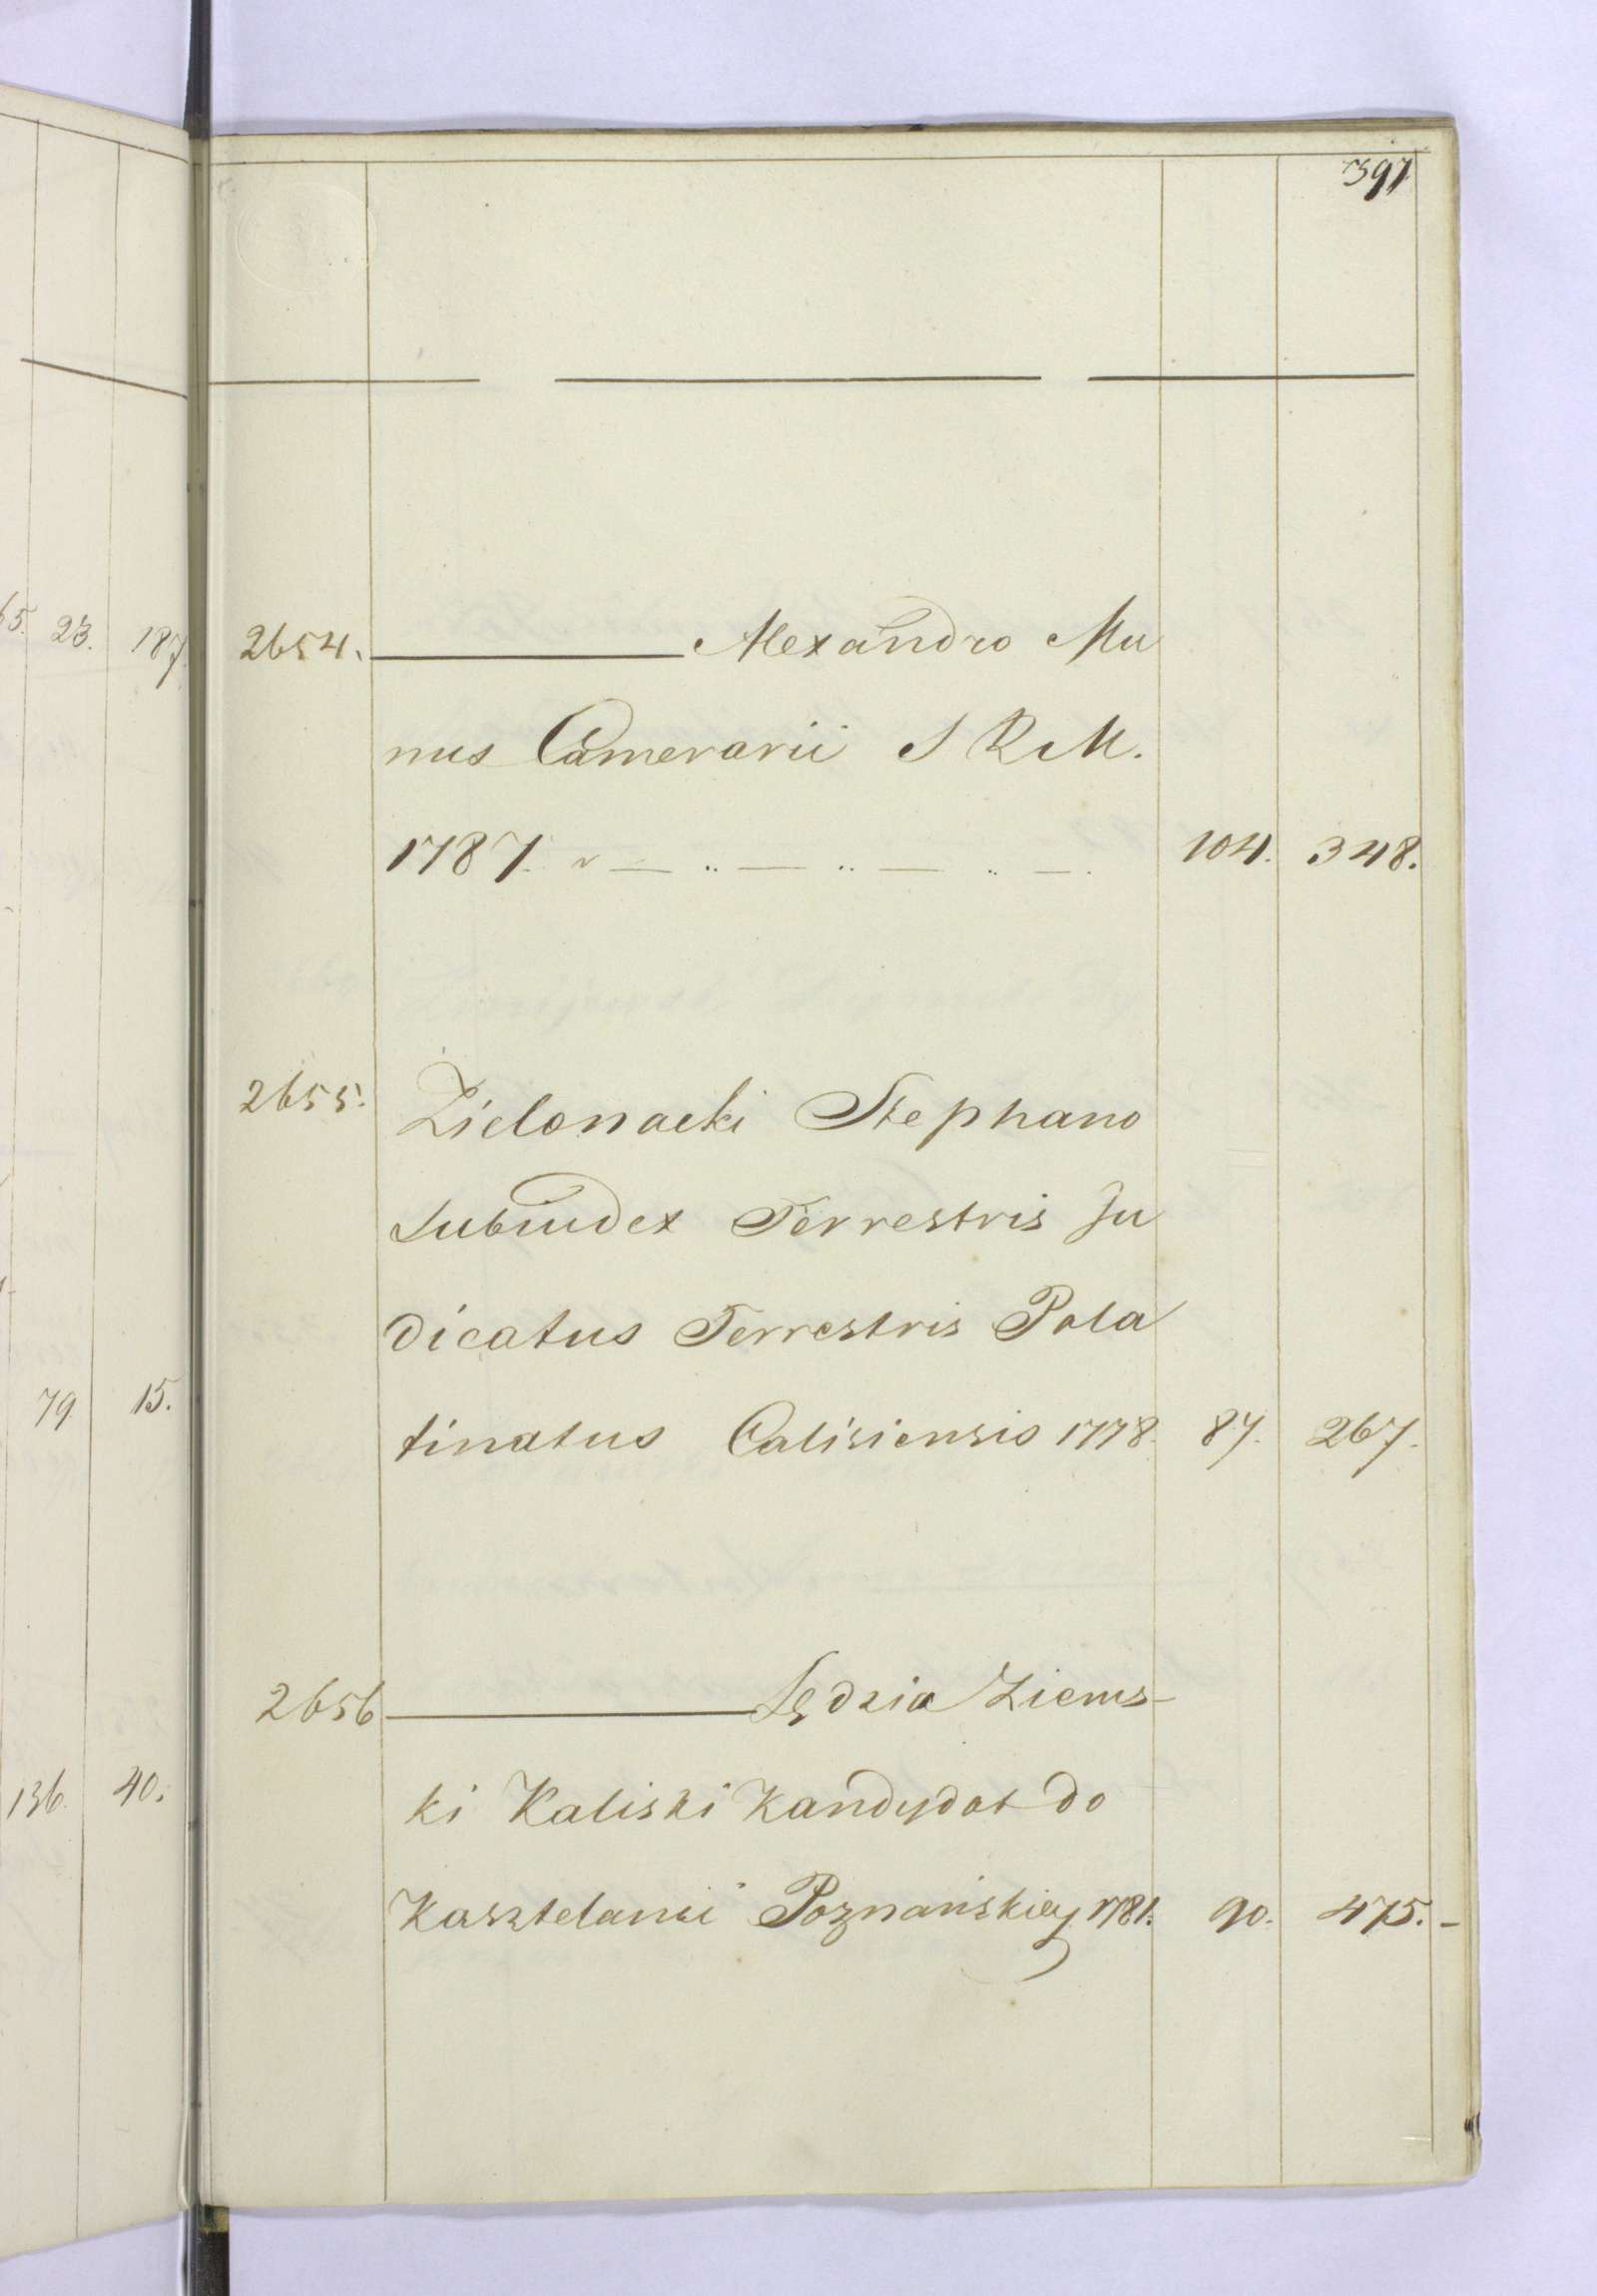 397
65. 23. 187.
2654. Alexandro Mu
nus Camerarii S R M.
1787. 104. 348.
2655. Zielonacki Stephano
Subiudex Terrestris Ju
dicatus Terrestris Pala
79 15.
tinatus Calisiensis 1778. 87. 267.
2656 Sędzia Ziems-
136. 40.
ki Kaliski Kandydat do
Kasztelanii Poznańskiey 1781. 90. 475.-